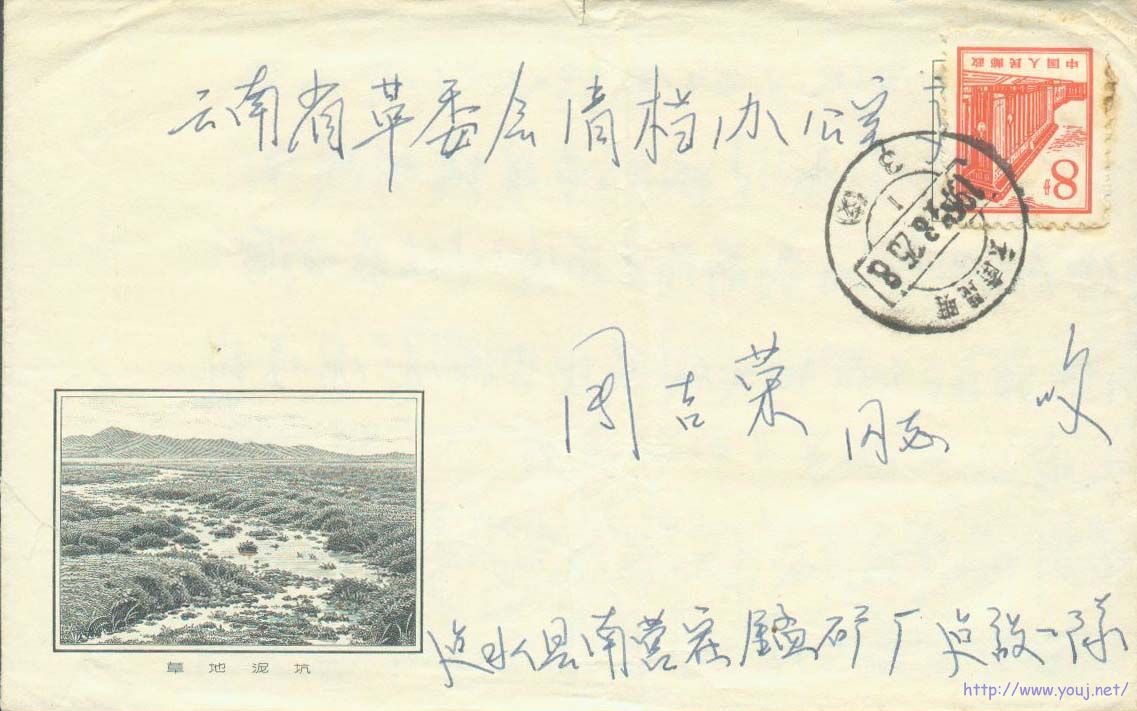 中国人民邮政
8分
云南省革委会清档办公室
云南昆明
周吉荣 同志 收
草地泥坑
县南营
矿厂
一队
http://www.youj.net/